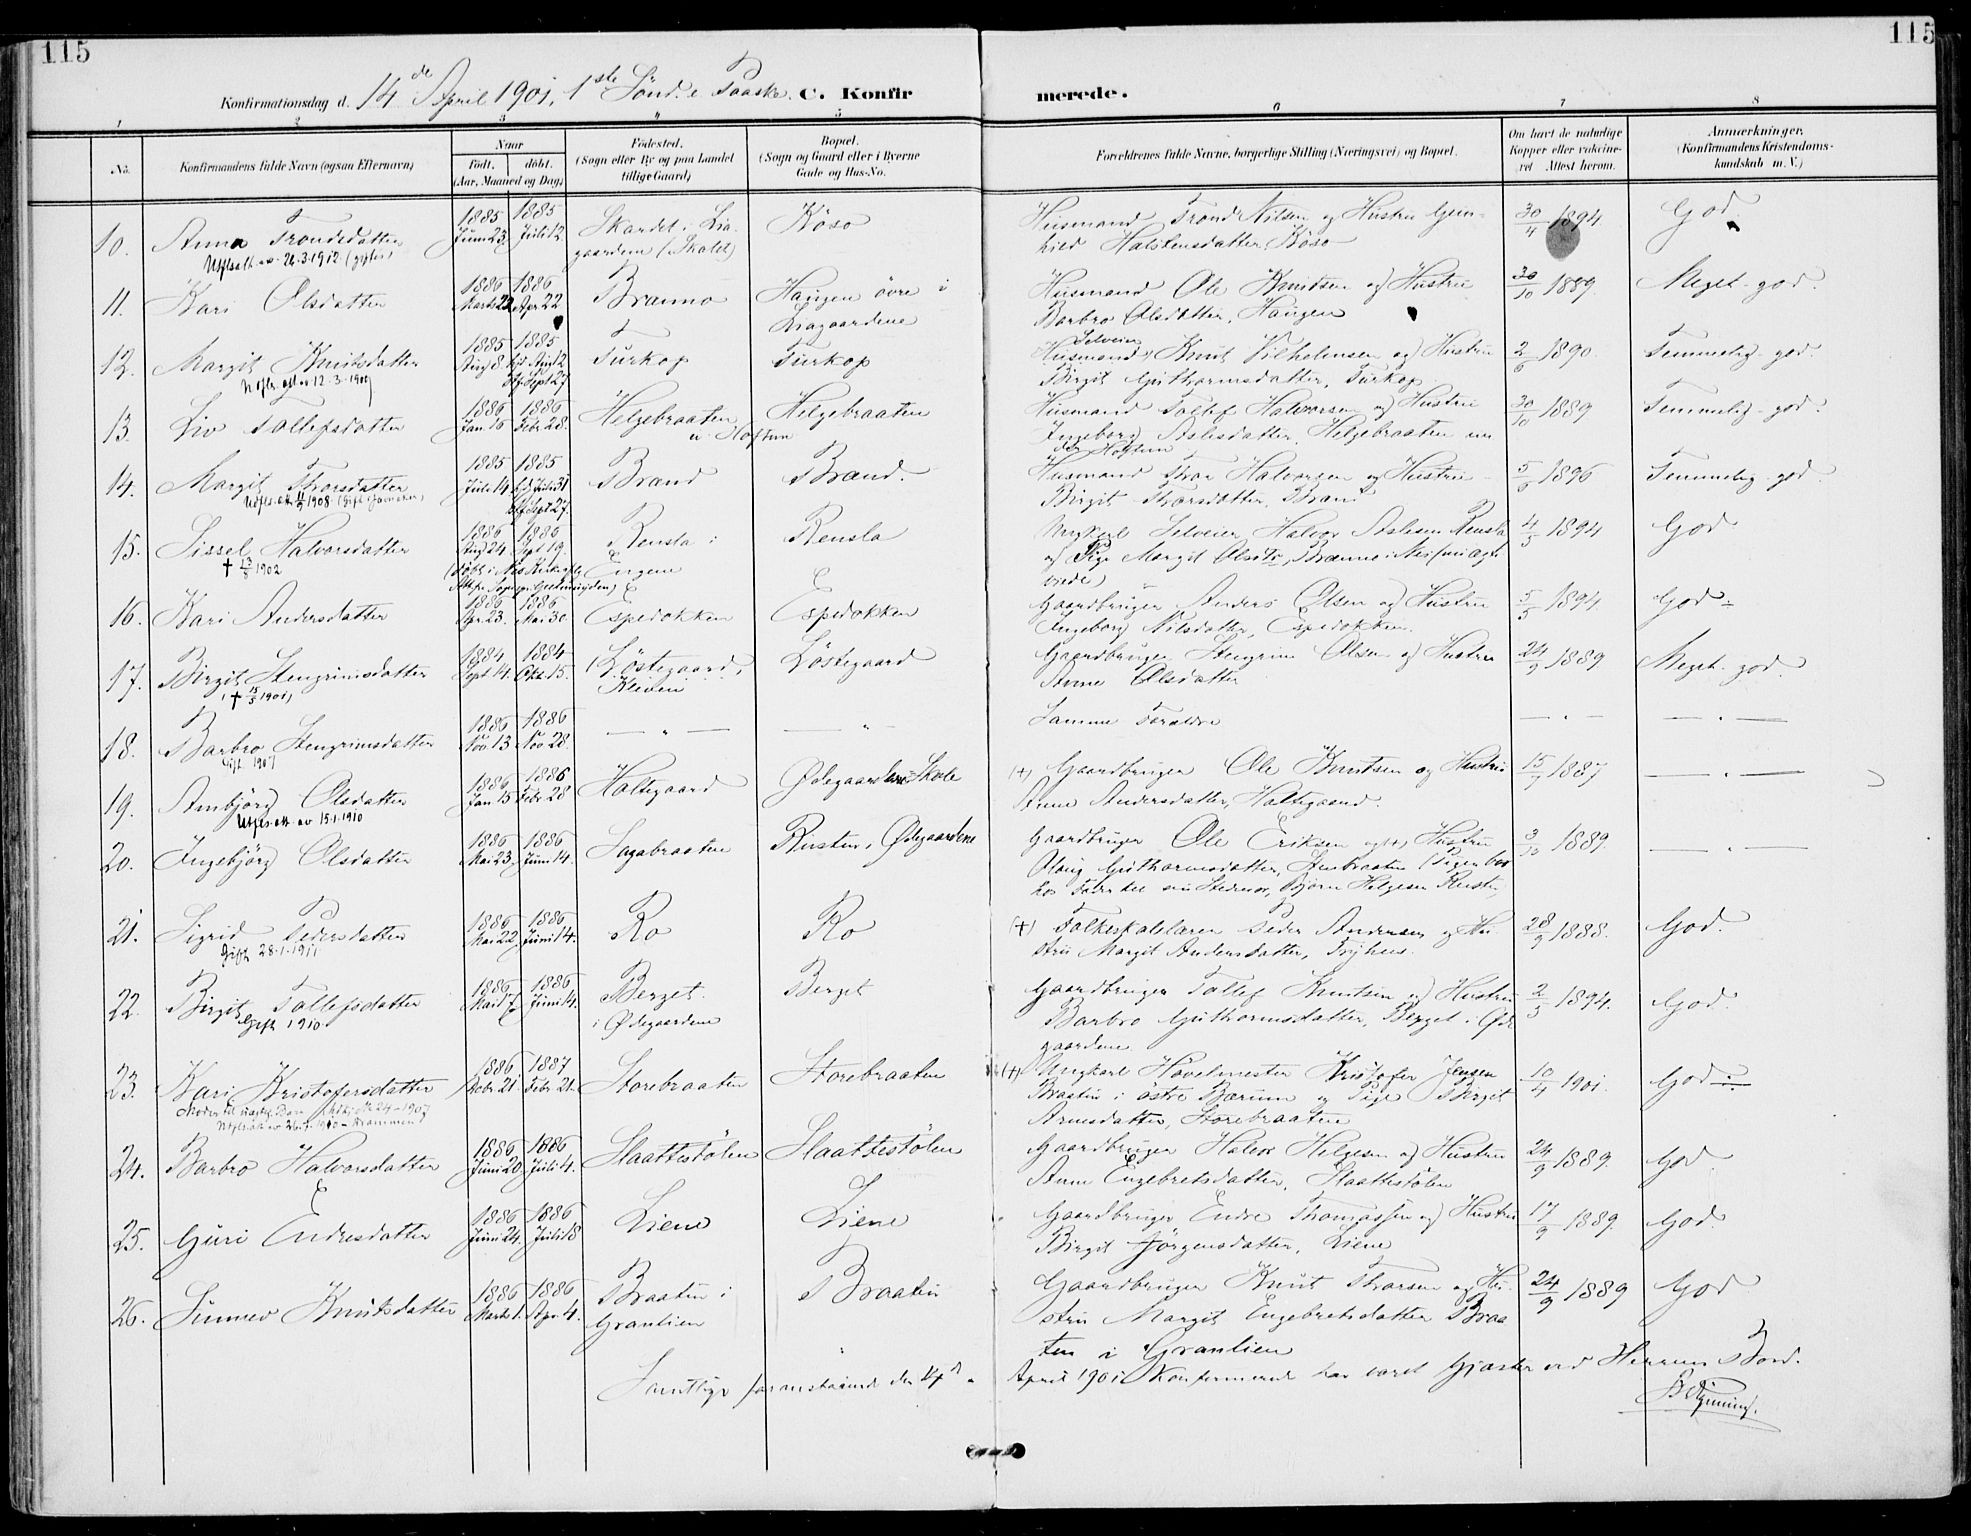 115
115
Konfirmationsdag d. 14de April 1901, 1ste Sönd. e. Paaske. C. Konfirmerede.
1 2 3 4 5 6 7 8
No.
Konfirmandens fulde Navn (ogsaa Efternavn)
Naar
födt. döbt.
(Aar, Maaned og Dag)
Födested.
(Sogn eller By og paa Landet
tillige Gaard)
Bopæl.
(Sogn og Gaard eller i Byerne
Gade og Hus-No.
Forældrenes fulde Navne, borgerlige Stilling (Næringsvei) og Bopæl.
Om havt de naturlige
Kopper eller vakcine-
ret Attest herom.
Anmærkninger.
(Konfirmandens Kristendoms-
kundskab m. V.)
10. Anna Trondsdatter 1885 Juni 23 1885 Juli 12 Skardet i Lia-
gaardene (Skalet) Köso Husmand Trond Nilsen og Hustru Gun-
hild Halstensdatter, Köso 30/4 1894 God
Utflsatt. av 24-3-1912 (giftes)
11. Kari Olsdatter 1886 Marts 22 1886 Apr 22 Brænno Haugen övre i
Liagaardene Husmand Ole Knutsen og Hustru
Barbro Olsdatter, Haugen 30/10 1889 Meget-god.
12. Margit Knutsdatter 1885 Aug 8 1885 hjd Aug 12
Stf. Sept 27 Turkop Turkop Selveier
Husmand Knut Vilhelmsen og Hustru
Birgit Guthormsdatter, Turkop 2/6 1890 Temmelig-god.
Utfls. att av 12-3-1907
13. Liv Tollefsdatter 1886 Jan 16 1886 Febr 28. Helgebraaten
u. Hoftun Helgebraaten Husmand Tollef Halvorsen og Hustru
Ingeborg Aslesdatter, Helgebraaten un
der Hoftun 30/10 1889 Temmelig-god.
14. Margit Thorsdatter 1885 Juli 14 1885 hjd Juli 31
Stf Sept 27. Brand Brand. Husmand Thor Halvorsen og Hustru
Birgit Thorsdatter, Brand 5/6 1896 Temmelig-god.
15. Sissel Halvorsdatter 1886 Aug 24 1886 Sept 19. Rensla i
Engene Rensla Ungkarl Selveier Halvor Aslesen Rensla
og Pige Margit Olsdtr, Brænne i Nes (nu ægte-
viede) 4/5 1894 God
16. Kari Andersdatter 1886 Apr 23. 1886 Mai 30. Espedokken Espedokken Gaardbruger Anders Olsen og Hustru
Ingeborg Nilsdatter, Espedokken. 5/5 1894. God -
17. Birgit Stengrimsdatter 1884 Sept 14. 1884 Okt 15. Löstegaard,
Kleven Löstegaard Gaardbruger Stengrim Olsen og Hustru
Anne Olsdatter 24/9 1889 Meget-god.
18. Barbro Stengrimsdatter 1886 Nov 13 1886 Nov 28. — " — — " Samme Forældre — " — — " —
Gift 1907
19. Ambjörg Olsdatter 1886 Jan 15 1886 Febr 28 Holtegaard Ødegaardens Skole (+) Gaardbruger Ole Knutsen og Hustru
Anne Andersdatter, Holtegaard. 15/7 1887 — " —
Utfls. att. av 15-1-1910
20. Ingebjörg Olsdatter 1886 Mai 23. 1886 Juni 14. Sagabraaten Rusten i Ødegaardene Gaardbruger Ole Eriksen og (+) Hustru
Olaug Guthormsdatter, 3/10 1889. — " —
21. Sigrid Pedersdatter 1886 Mai 22 1886 Juni 14. Ro Ro (+) Folkeskolelærer Peder Andersen og Hu-
stru Margit Andersdatter, 28/9 1888. God.
Gift 28-1-1911
22. Birgit Tollefsdatter 1886 Mai 17 1886 Juni 14. Berget
i Ødegaardene Berget Gaardbruger Tollef Knutsen og Hustru
Barbro Guthormsdatter, Berget i Øde
gaardene 2/5 1894. God.
Gift 1910
23. Kari Kristofersdatter 1886 1887 Febr 21. Storebraaten Storebraaten (+) Ungkarl Høvelmester Kristofer Jensen
Braaten i östre Bærum og Pige Birgit
Arnesdatter, Storebraaten 10/4 1901. God -
24. Barbro Halvorsdatter 1886 Juni 20 1886 Juli 4. Slaattestölen Slaattestölen Gaardbruger Halvor Helgesen og Hustru
Anne Engebretsdatter, Slaattestölen 24/9 1889. God
25. Guri Endresdatter 1886 Juni 24. 1886 Juli 18 Liene Liene Gaardbruger Endre Thomassen og Hustru
Birgit Jörgensdatter, Liene 17/9 1889. God.
26. Sunnev Knutsdatter 1886 Marts 1. 1886 Apr. 4. Braaten i
Granlien Braaten Gaardbruger Knut Thorsen og Hu-
stru Margit Engebretsdatter Braa
ten i Granlien 24/9 1889 God
Samtlige foranstaaende den 14de
April 1901 Konfirmerede har været Gjæster ved Herrens Bord.